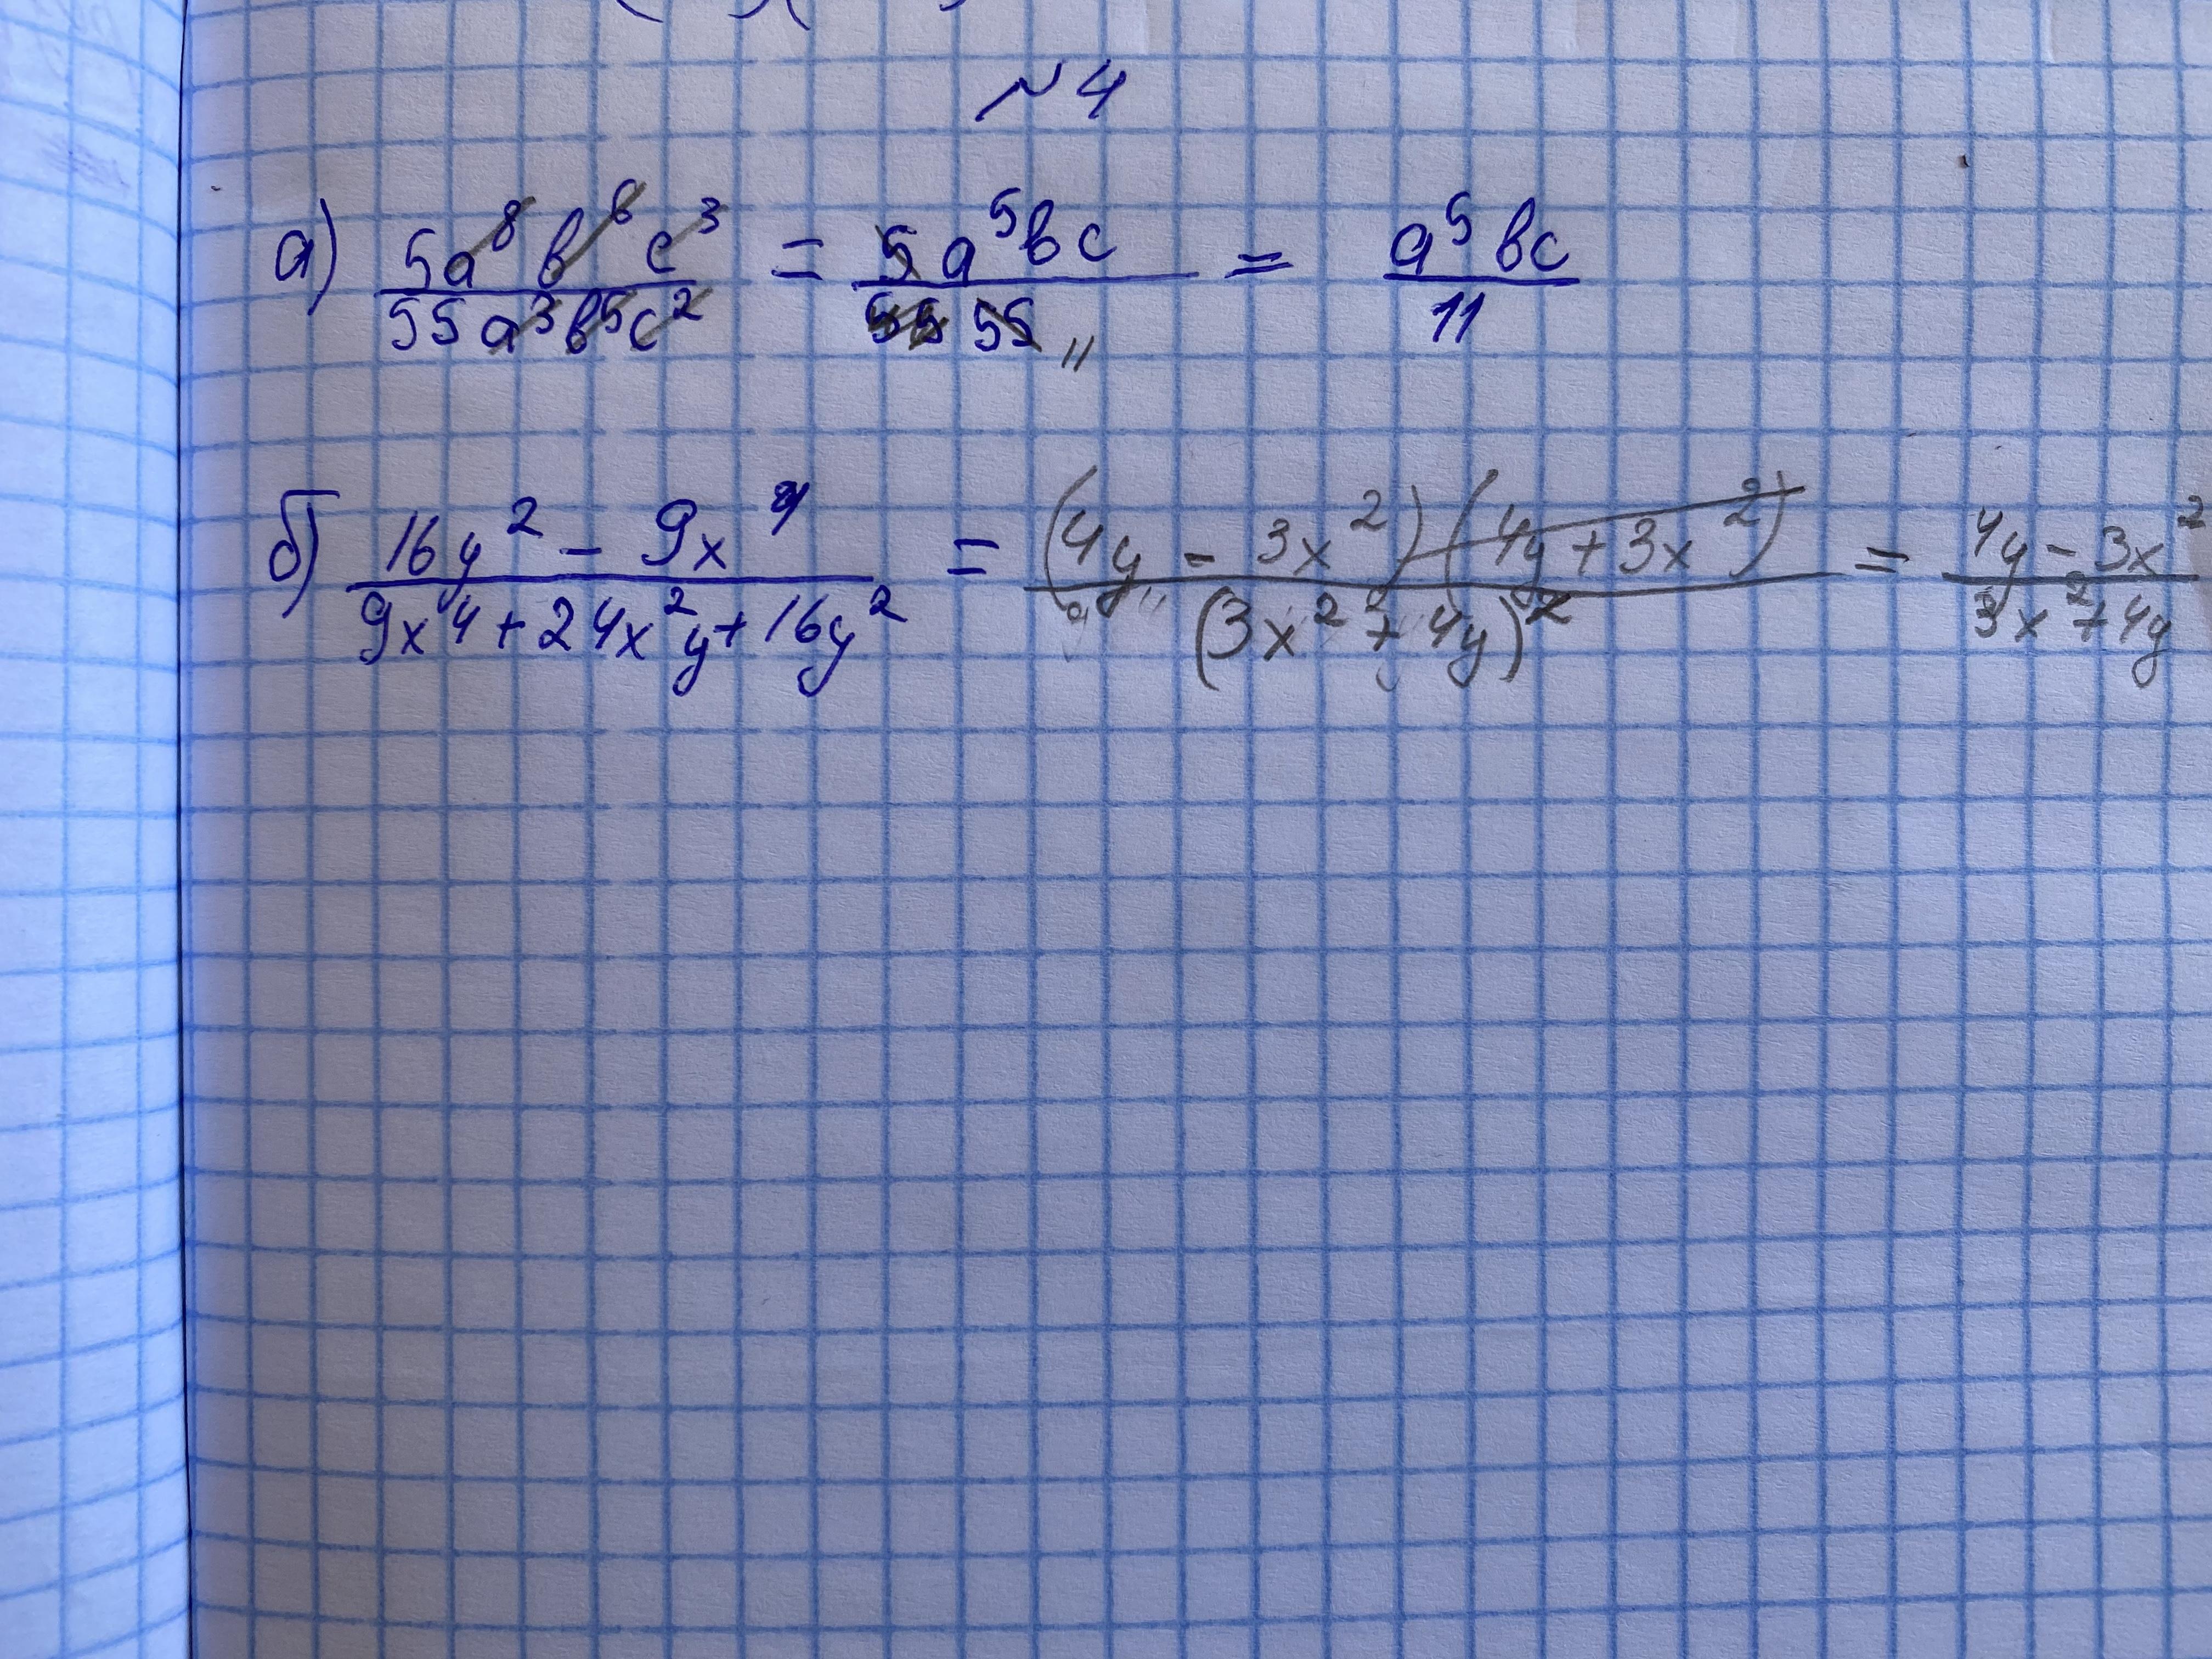 №4
а) 5a⁸b⁶c³ / 55a³b⁵c² = 5a⁵bc / 55 55 11 = a⁵bc / 11
б) 16y² - 9x⁴ / 9x⁴ + 24x²y + 16y² = (4y - 3x²)(4y + 3x²) / (3x² + 4y)² = 4y - 3x² / 3x² + 4y